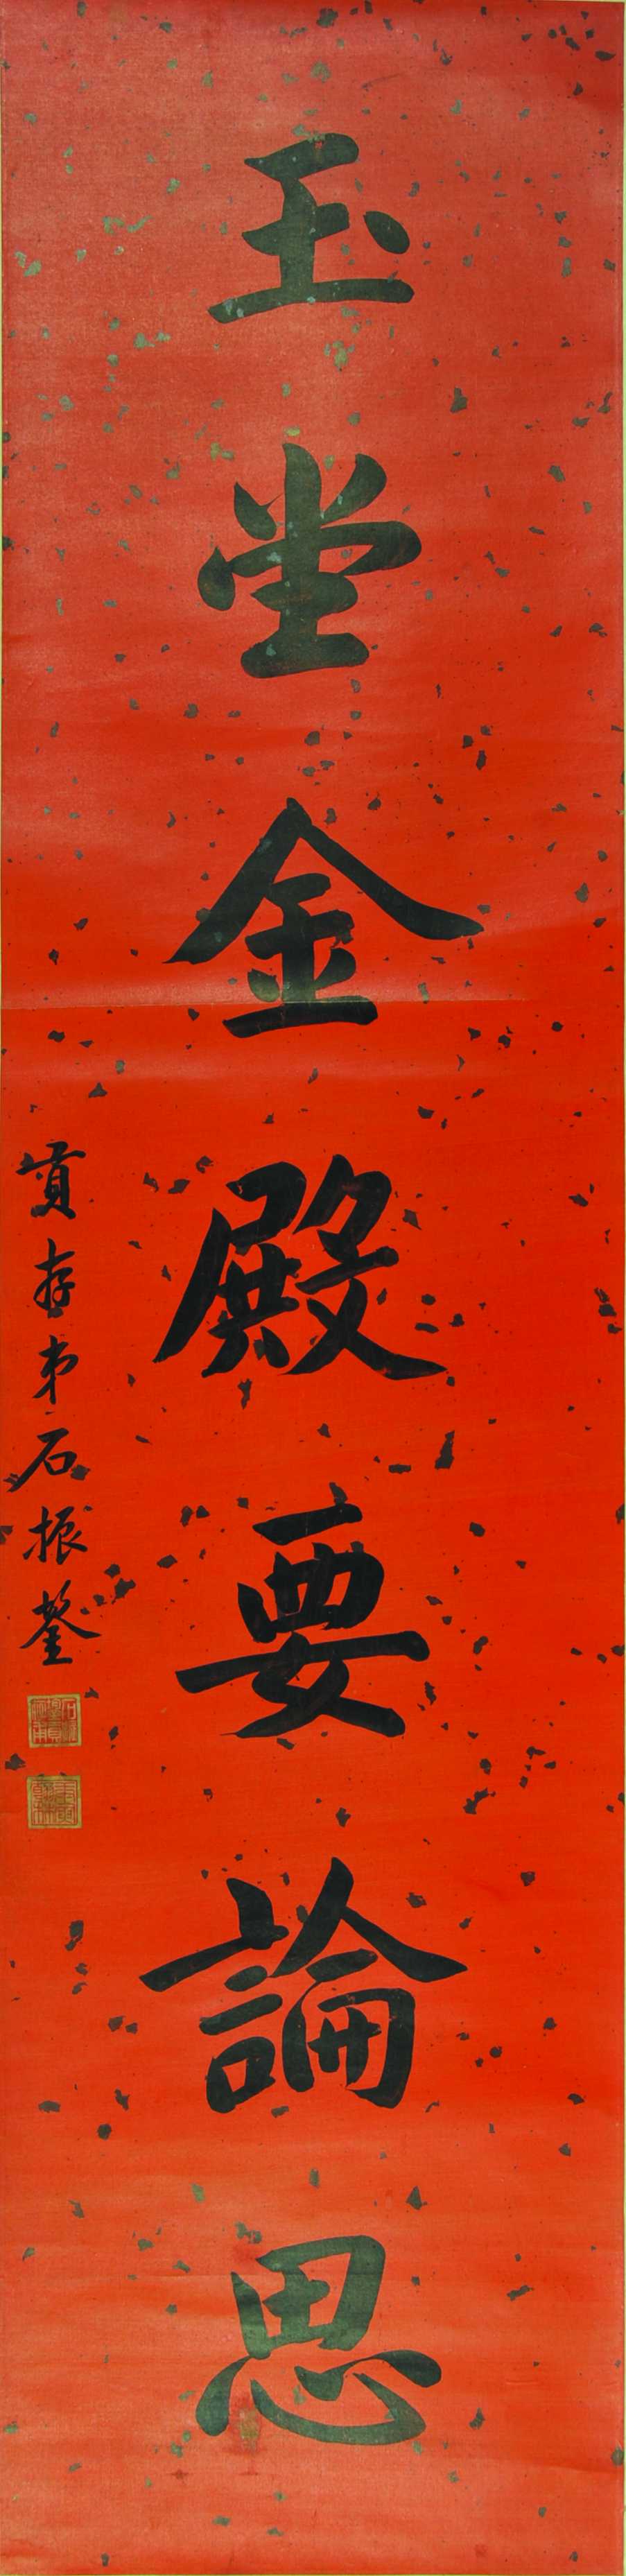 玉堂金殿要論思
存弟石振